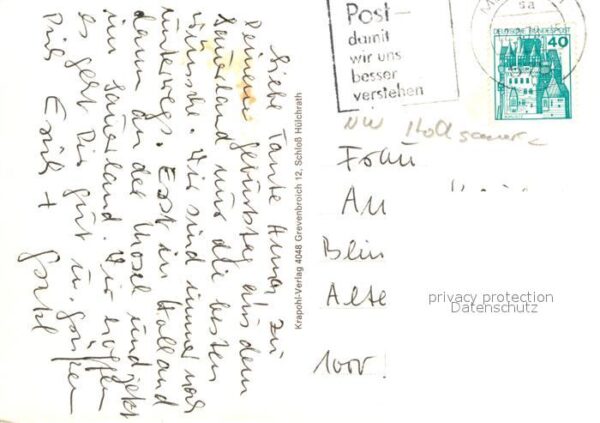 Liebe Tante Anna, zu
Deinem Geburtstag aus dem
Sauerland nun die besten
Wünsche. Wir sind immer noch
unterwegs. Erst in Holland
dann an der Mosel und jetzt
im Sauerland. Wir hoffen
es geht Dir gut u. grüßen
Dich Erich +
Krapohl-Verlag 4048 Grevenbroich 12, Schloß Hülchrath
Post-
damit
wir uns
besser
verstehen
DEUTSCHE BUNDESPOST
40
NW
Frau
An
Alte
privacy protection
Datenschutz